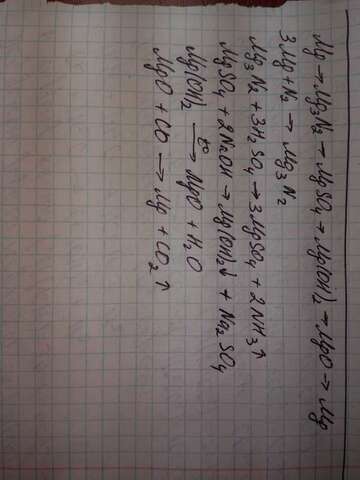 Mg → Mg₃N₂ → MgSO₄ → Mg(OH)₂ → MgO → Mg
3Mg + N₂ → Mg₃N₂
Mg₃N₂ + 3H₂SO₄ → 3MgSO₄ + 2NH₃↑
MgSO₄ + 2NaOH → Mg(OH)₂↓ + Na₂SO₄
Mg(OH)₂ t° → MgO + H₂O
MgO + CO → Mg + CO₂↑